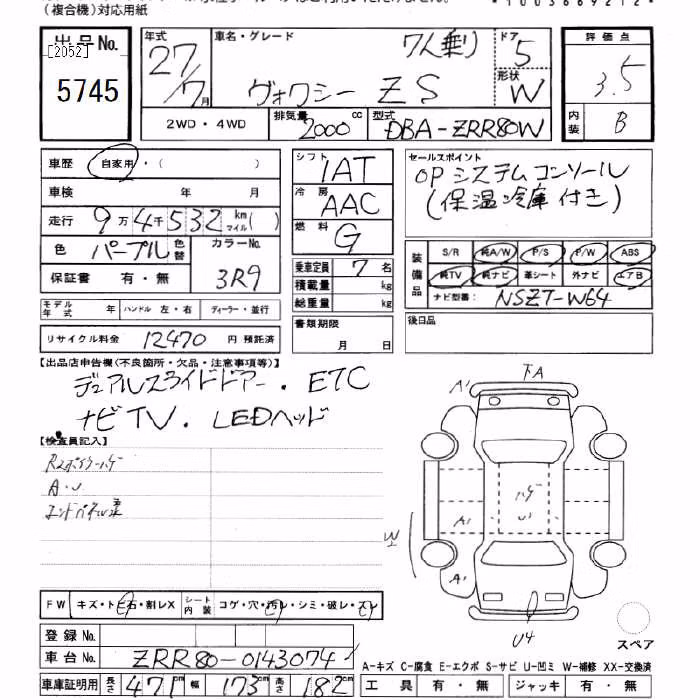 (複合機)対応用紙
*1003669212*
出品No.
[2052]
5745
年式 27/7月
車名・グレード 7人乗り
ヴォクシー ZS
ドア 5
形状 W
評価点 3.5
内装 B
2WD・4WD
排気量 2000 cc
型式 DBA-ZRR80W
車歴 自家用・( )
車検 年 月
走行 9万4千532 km マイル( )
色 パープル 色替
カラーNo. 3R9
保証書 有・無
モデル年式 年 ハンドル 左・右 ディーラー・並行
リサイクル料金 12470 円 預託済
シフト IAT
冷房 AAC
燃料 G
乗車定員 7 名
積載量 kg
総重量 kg
書類期限
月 日
セールスポイント
OPシステムコンソール
(保温冷庫付き)
装備品
S/R 純A/W P/S P/W ABS
純TV 純ナビ 革シート 外ナビ エアB
ナビ型番: NSZT-W64
後日品
【出品店申告欄(不良箇所・欠品・注意事項等)】
デュアルスライドドアー・ETC
ナビTV・LEDヘッド
【検査員記入】
A・U
下A
A'
A'
A'
W
U4
FW キズ・トビ石・割レX
シート内装 コゲ・穴・汚レ・シミ・破レ・スレ
登録No.
車台No. ZRR80-0143074
車庫証明用 長さ 471 cm 幅 173 cm 高さ 182 cm
スペア
A-キズ C-腐食 E-エクボ S-サビ U-凹ミ W-補修 XX-交換済
工具 有・無 ジャッキ 有・無